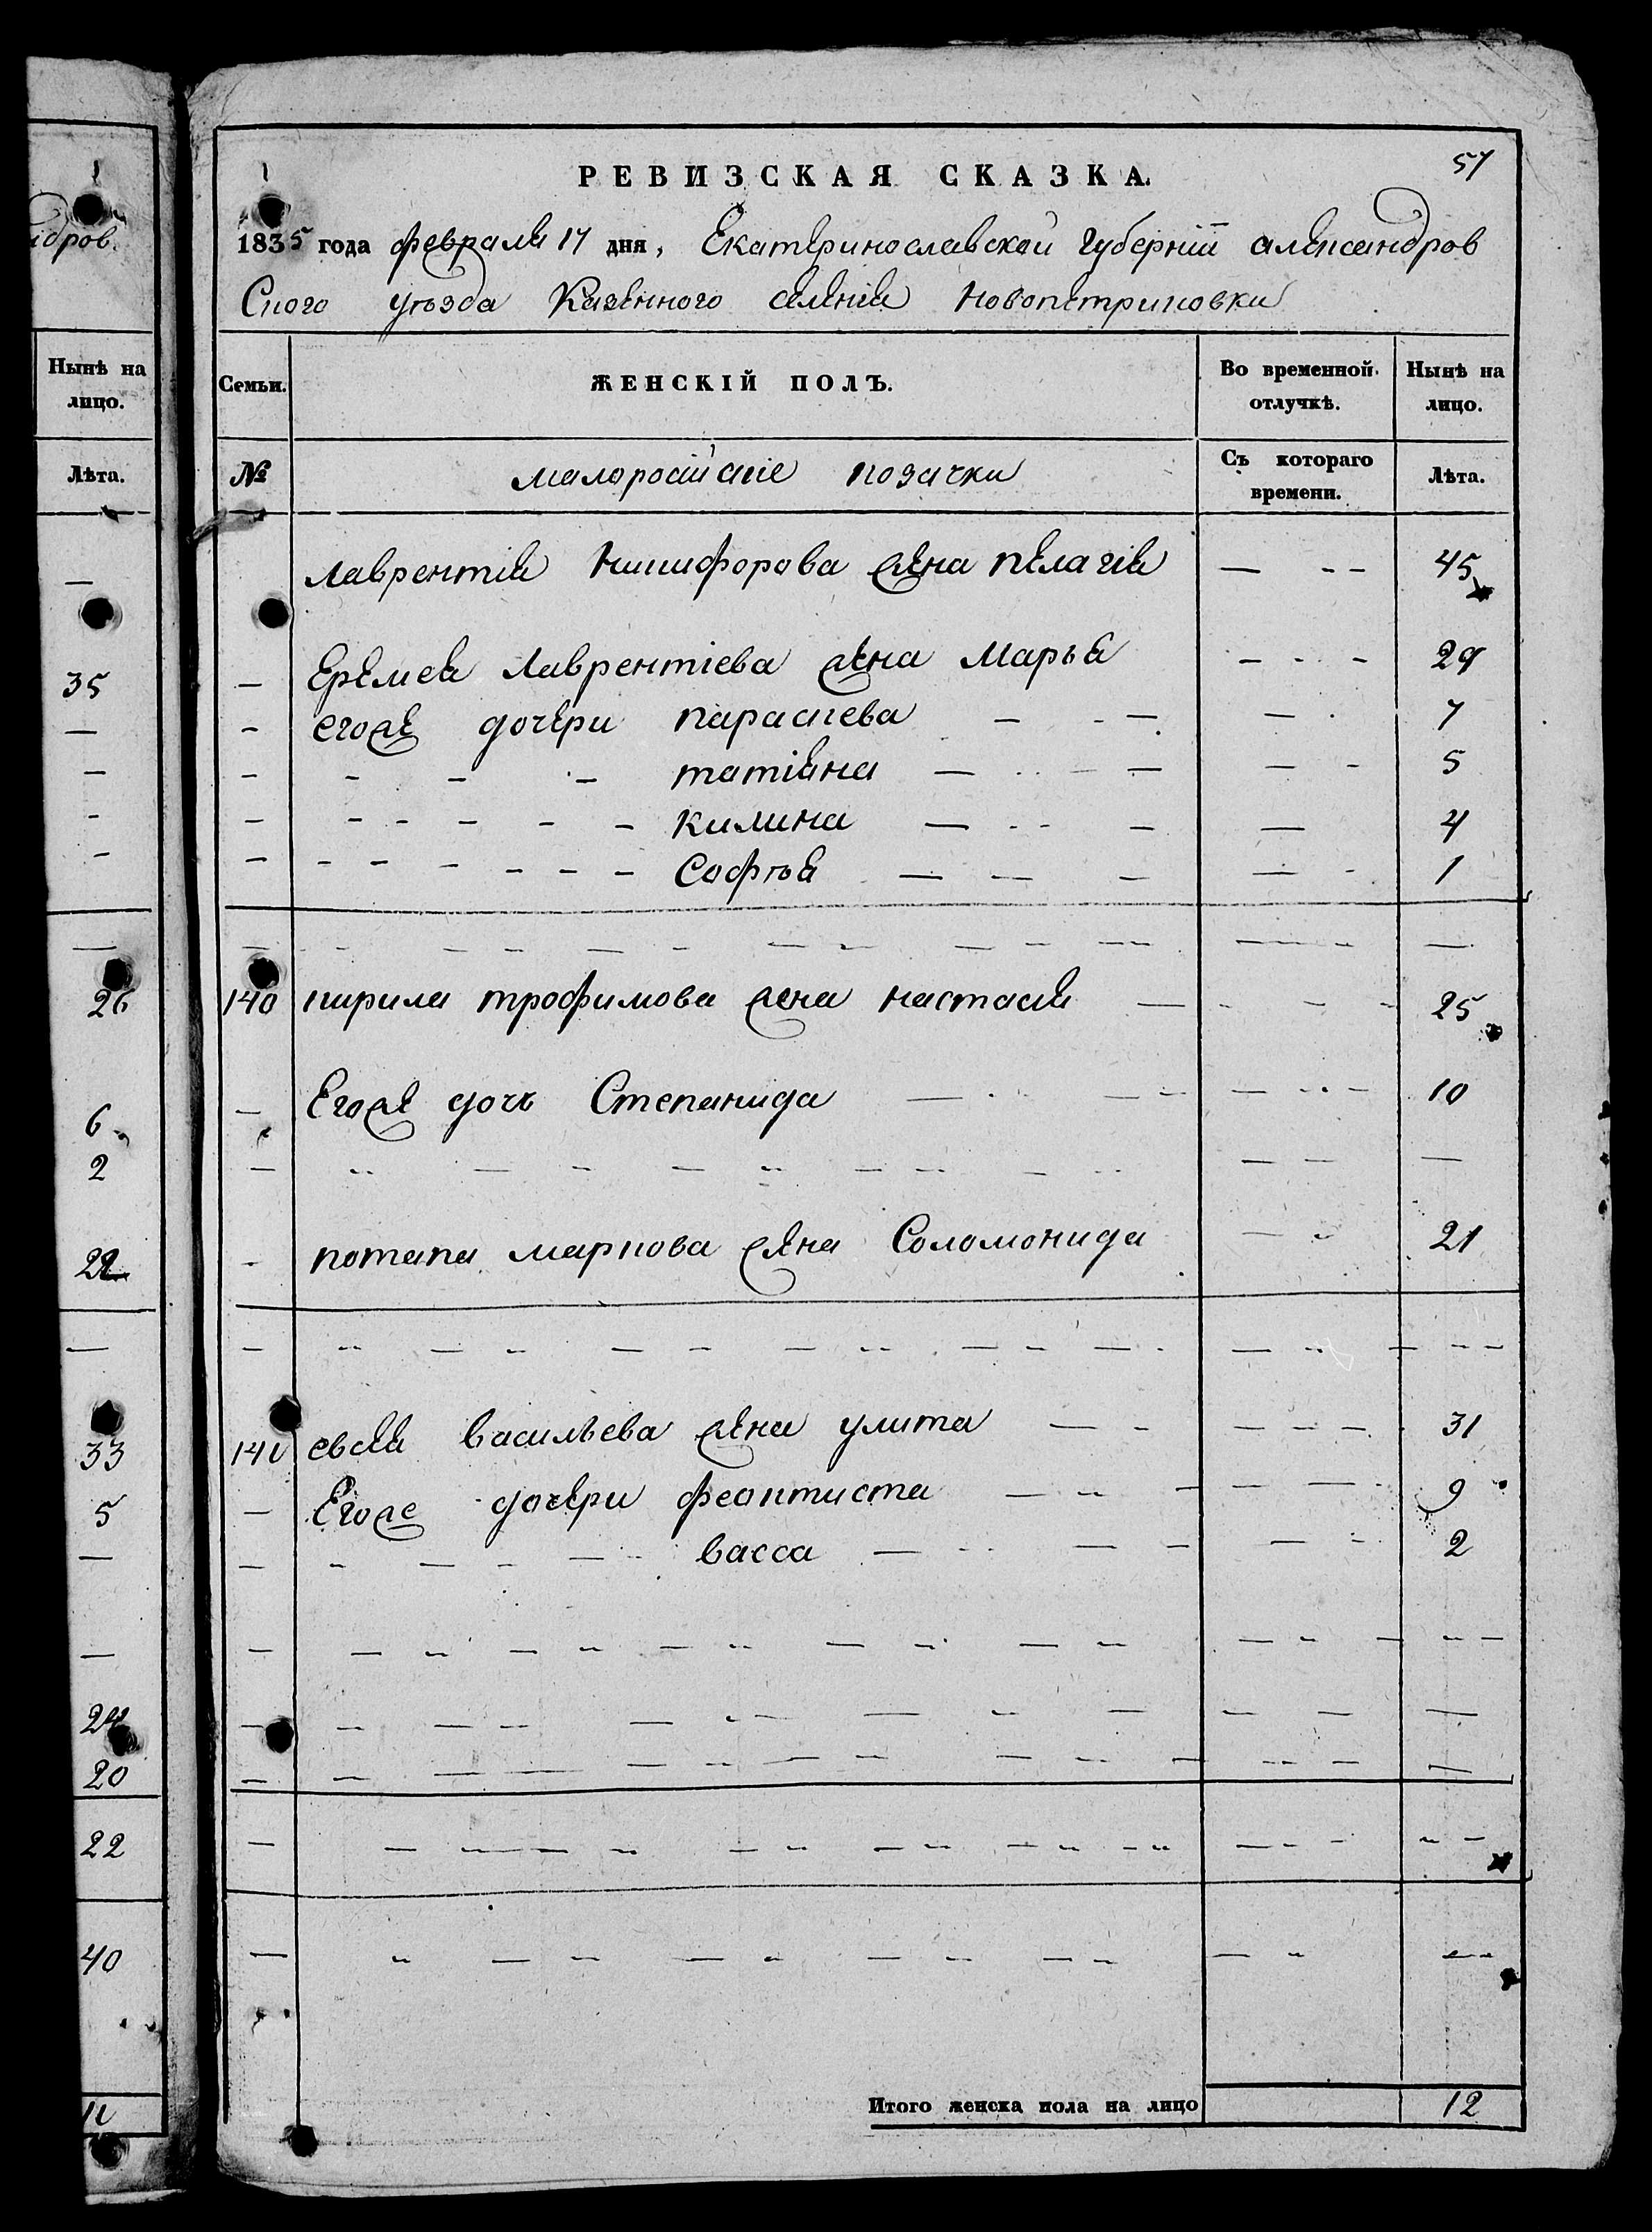 57
РЕВИЗСКАЯ СКАЗКА.
1835 года февраля 17 дня, Екатеринославской губернїи александров
Ского уѣзда Казенного селенїя Новопетриковки
Семьи.
ЖЕНСКІЙ ПОЛЪ.
Во временной отлучкѣ.
Ныне на лицо.
№
малоросїйскїе козачки
Съ котораго времени.
Лѣта.
Лаврентїя Никифорова жена пелагїя — 45
Еремея Лаврентїева жена Марья — 29
егоже дочери параскева — 7
татїяна — 5
килина — 4
Софья — 1
140 кирила трофимова жена настася — 25
Егоже дочь Степанида — 10
потапа маркова жена Соломонида — 21
141 евсея васильева жена улита — 31
Егоже дочери феоктиста — 9
васса — 2
Итого женска пола на лицо 12
ндров.
Нынѣ на лицо.
Лѣта.
35
26
6
2
22
33
5
24
20
22
40
11